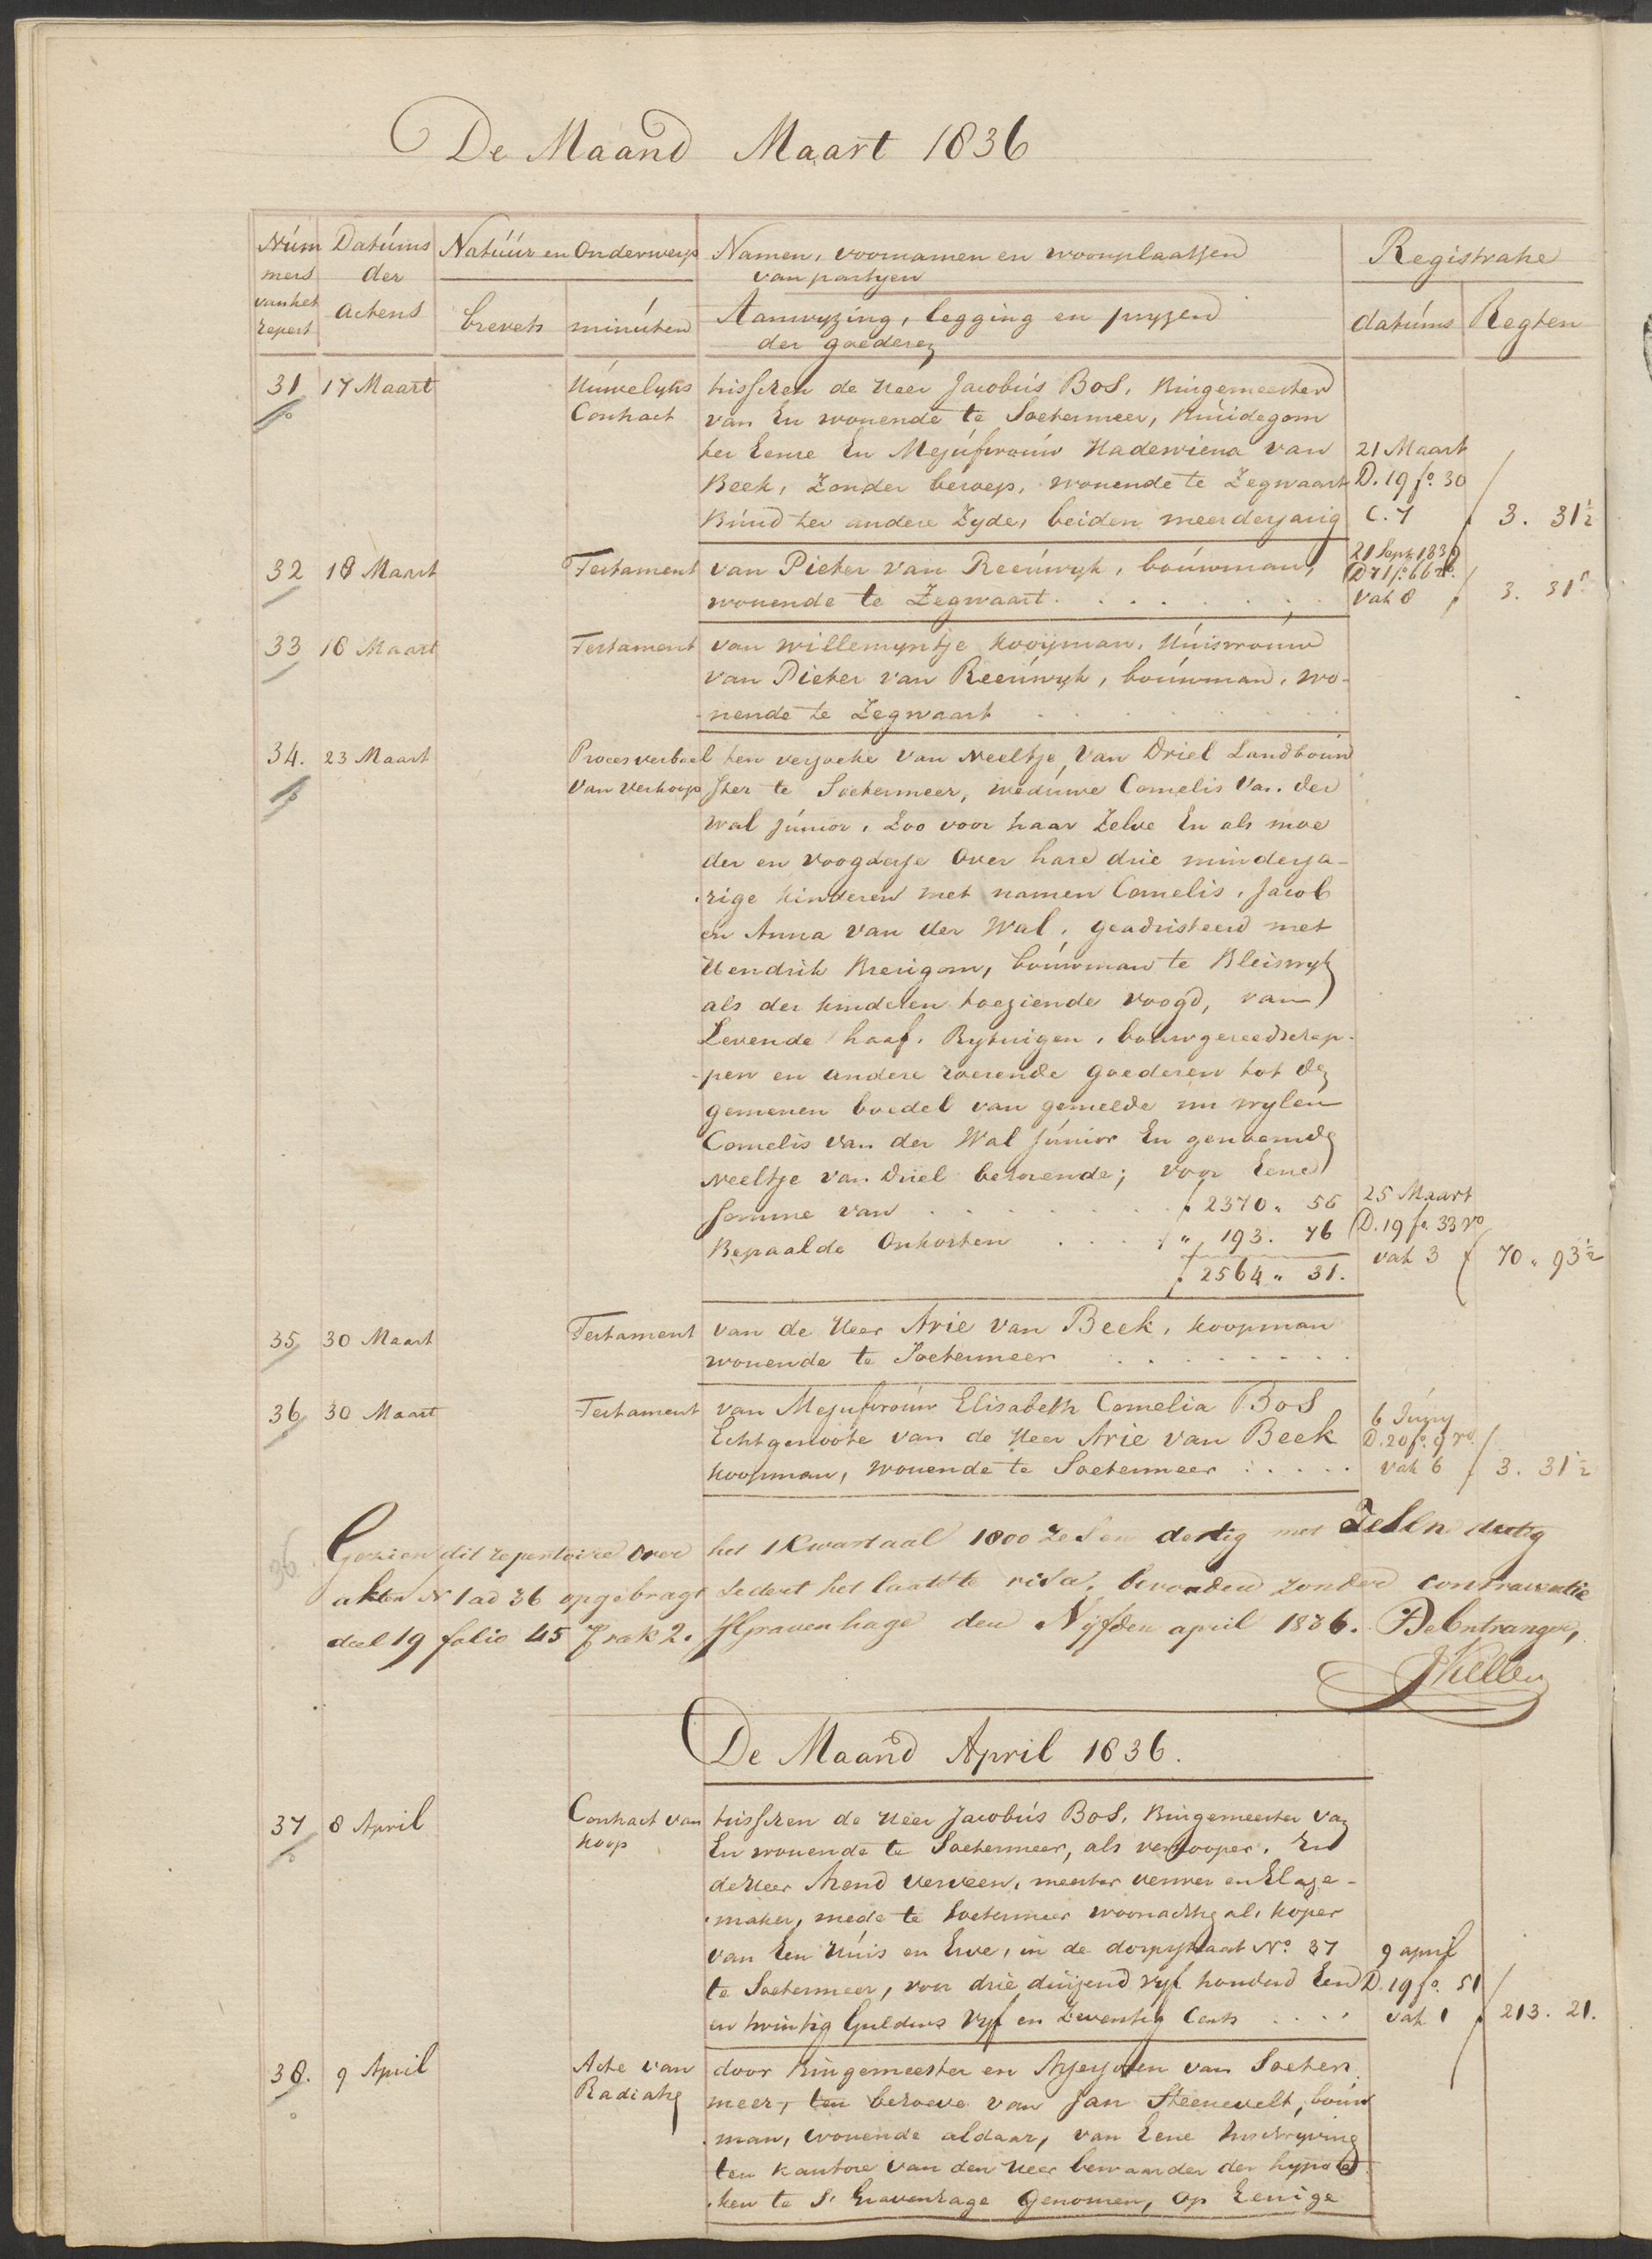 De Maand Maart 1836
Núm Datúms Natúúr en Onderwerp Namen, voornamen en woonplaatsen Registratie
mers der van partyen
van het actens brevets minúten Aanwyzing, legging en pryzen datúms Regten
repert der goederen
31 17 Maart Húwelyks tusschen de Heer Jacobús Bos, Burgemeester
Contract van En wonende te Soetermeer, Brúidegom
ter Eenre En Mejúfvroúw Hadewiena van 21 Maart
Beek, Zonder beroep, wonende te Zegwaart D. 19 fo. 30
Brúid ter andere Zyde, beiden meerderjarig C. 7 f 3. 31½
32 18 Maart Testament van Pieter van Reeúwyk, boúwman, 21 Sept 1839
D 71 fo. 66 ro.
wonende te Zegwaart. vak 8 f 3. 31½
33 18 Maart Testament van Willemyntje Kooijman, Húisvrouw
van Pieter van Reeúwyk, boúwman, wo-
nende te Zegwaart
34. 23 Maart Procesverbaal ten verzoeke van Neeltje van Driel Landboúw
van verkoop ster te Soetermeer, wedúwe Cornelis van der
Wal júnior, Zoo voor haar Zelve En als moe
der en voogdesse over hare drie minderja-
rige kinderen met namen Cornelis, Jacob
en Anna van der Wal, geadsisteerd met
Hendrik Breugom, boúwman te Bleiswyk
als der kinderen toeziende voogd, van
Levende haaf, Rytuigen, bouwgereedschap-
pen en andere roerende goederen tot de
gemeenen boedel van gemelde nu wylen
Cornelis van der Wal Júnior En genoemde
Neeltje van Driel behoorende; voor Eene
somme van f 2370. 55 25 Maart
Bepaalde Onkosten " 193. 76 D. 19 fo. 33 vo
f 2564. 31. vak 3 f 70. 93½
35 30 Maart Testament van de Heer Arie van Beek, koopman
wonende te Soetermeer
36 30 Maart Testament van Mejufvroúw Elisabeth Cornelia Bos 6 Júny
Echtgenoote van de Heer Arie van Beek D. 20 fo. 9 ro.
koopman, wonende te Soetermeer vak 6 f 3. 31½
36. Gezien dit repertoire over het 1 Kwartaal 1800 Zes en dertig met Zes en dertig
akten N 1 ad 36 opgebragt sedert het laatste visa, bevonden zonder contraventie
deel 19 folio 45 vak 2. sGravenhage den Vyfden april 1836. De Ontvanger,
De Maand April 1836.
37 8 April Contract van tusschen de Heer Jacobús Bos, Burgemeester van
koop En wonende te Soetermeer, als verkooper, En
de Heer Arend Verveen, meester verwer en Glaze-
maker, mede te Soetermeer woonachtig als koper
van Een Húis en Erve, in de dorpstraat No. 37 9 april
te Soetermeer, voor drie duizend vyf honderd Een D. 19 fo. 51
en twintig Guldens Vyf en Zeventig Cents vak 1 f 213. 21.
38. 9 April Acte van door Burgemeester en Assessoren van Soeter
Radiatie meer, ten behoeve van Jan Steenevelt, boúw
man, wonende aldaar, van Eene Inschryving
ten kantore van den Heer bewaarder der hypote
ken te S' Gravenhage genomen, op Eenige